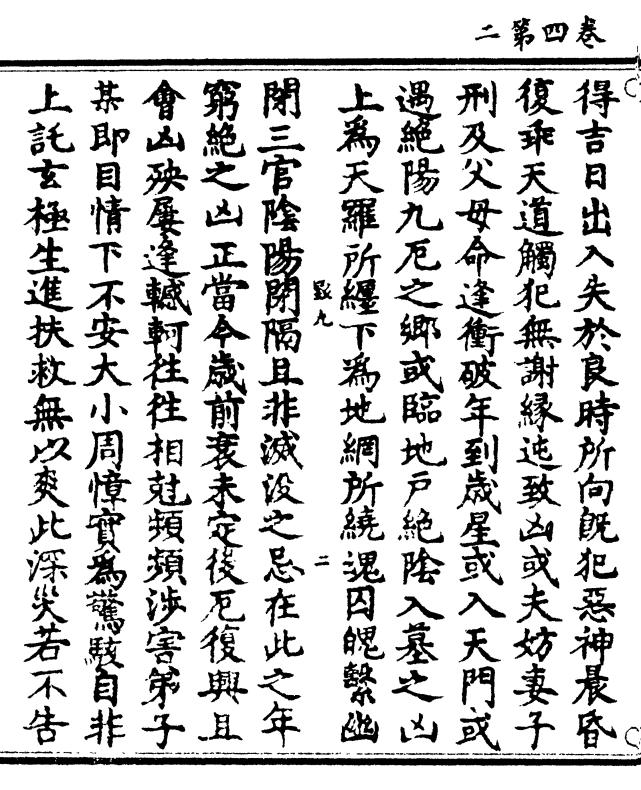 卷四第二
得吉日出入失於良時所向既犯惡神晨昏
復乖天道觸犯無謝緣迍致凶或夫妨妻子
刑及父母命逢衝破年到歲星或入天門或
遇絕陽九厄之鄉或臨地戶絕陰入墓之凶
上為天羅所纏下為地網所繞魂囚魄繫幽
九
二
閉三官陰陽閉隔且非滅沒之忌在此之年
窮絕之凶正當今歲前衰未定後厄復興且
會凶殃屢逢轗軻往往相尅頻頻涉害弟子
某即目情下不安大小周慞實為驚駭自非
上託玄極生進扶救無以爽此深災若不告